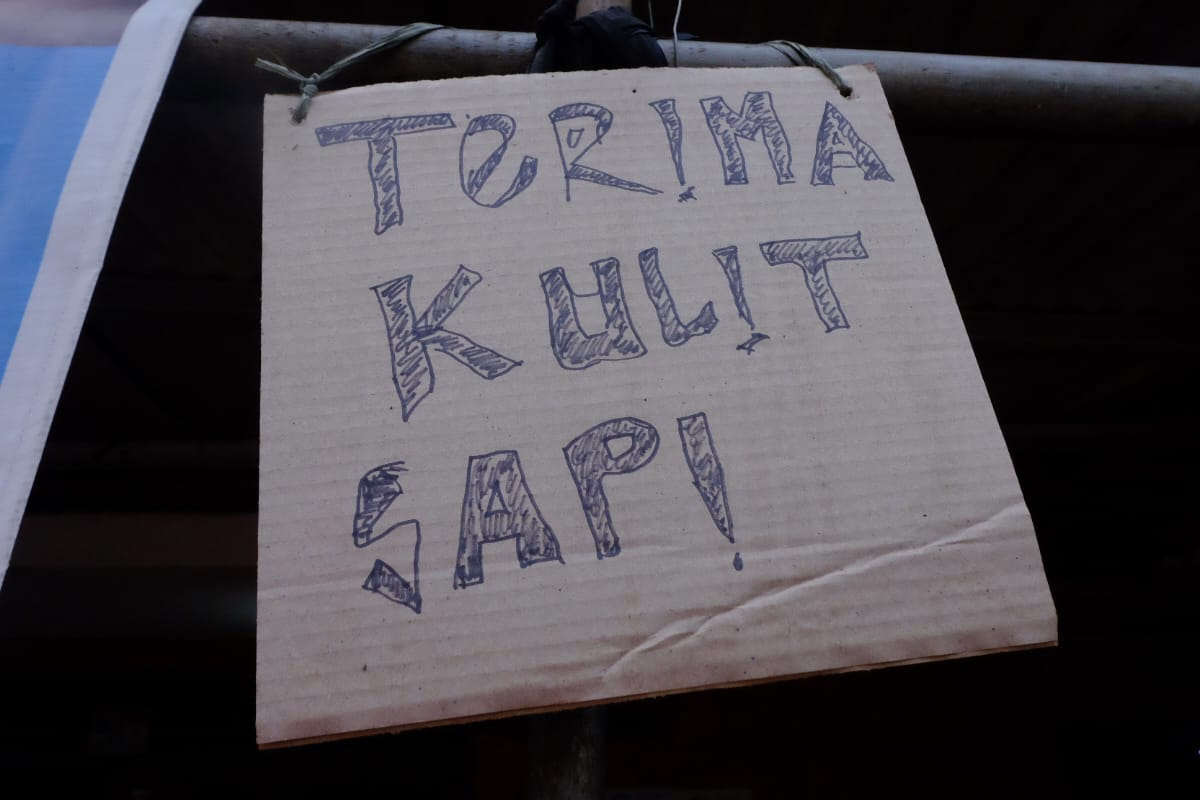 TeRIMA
KULIT
SAPI